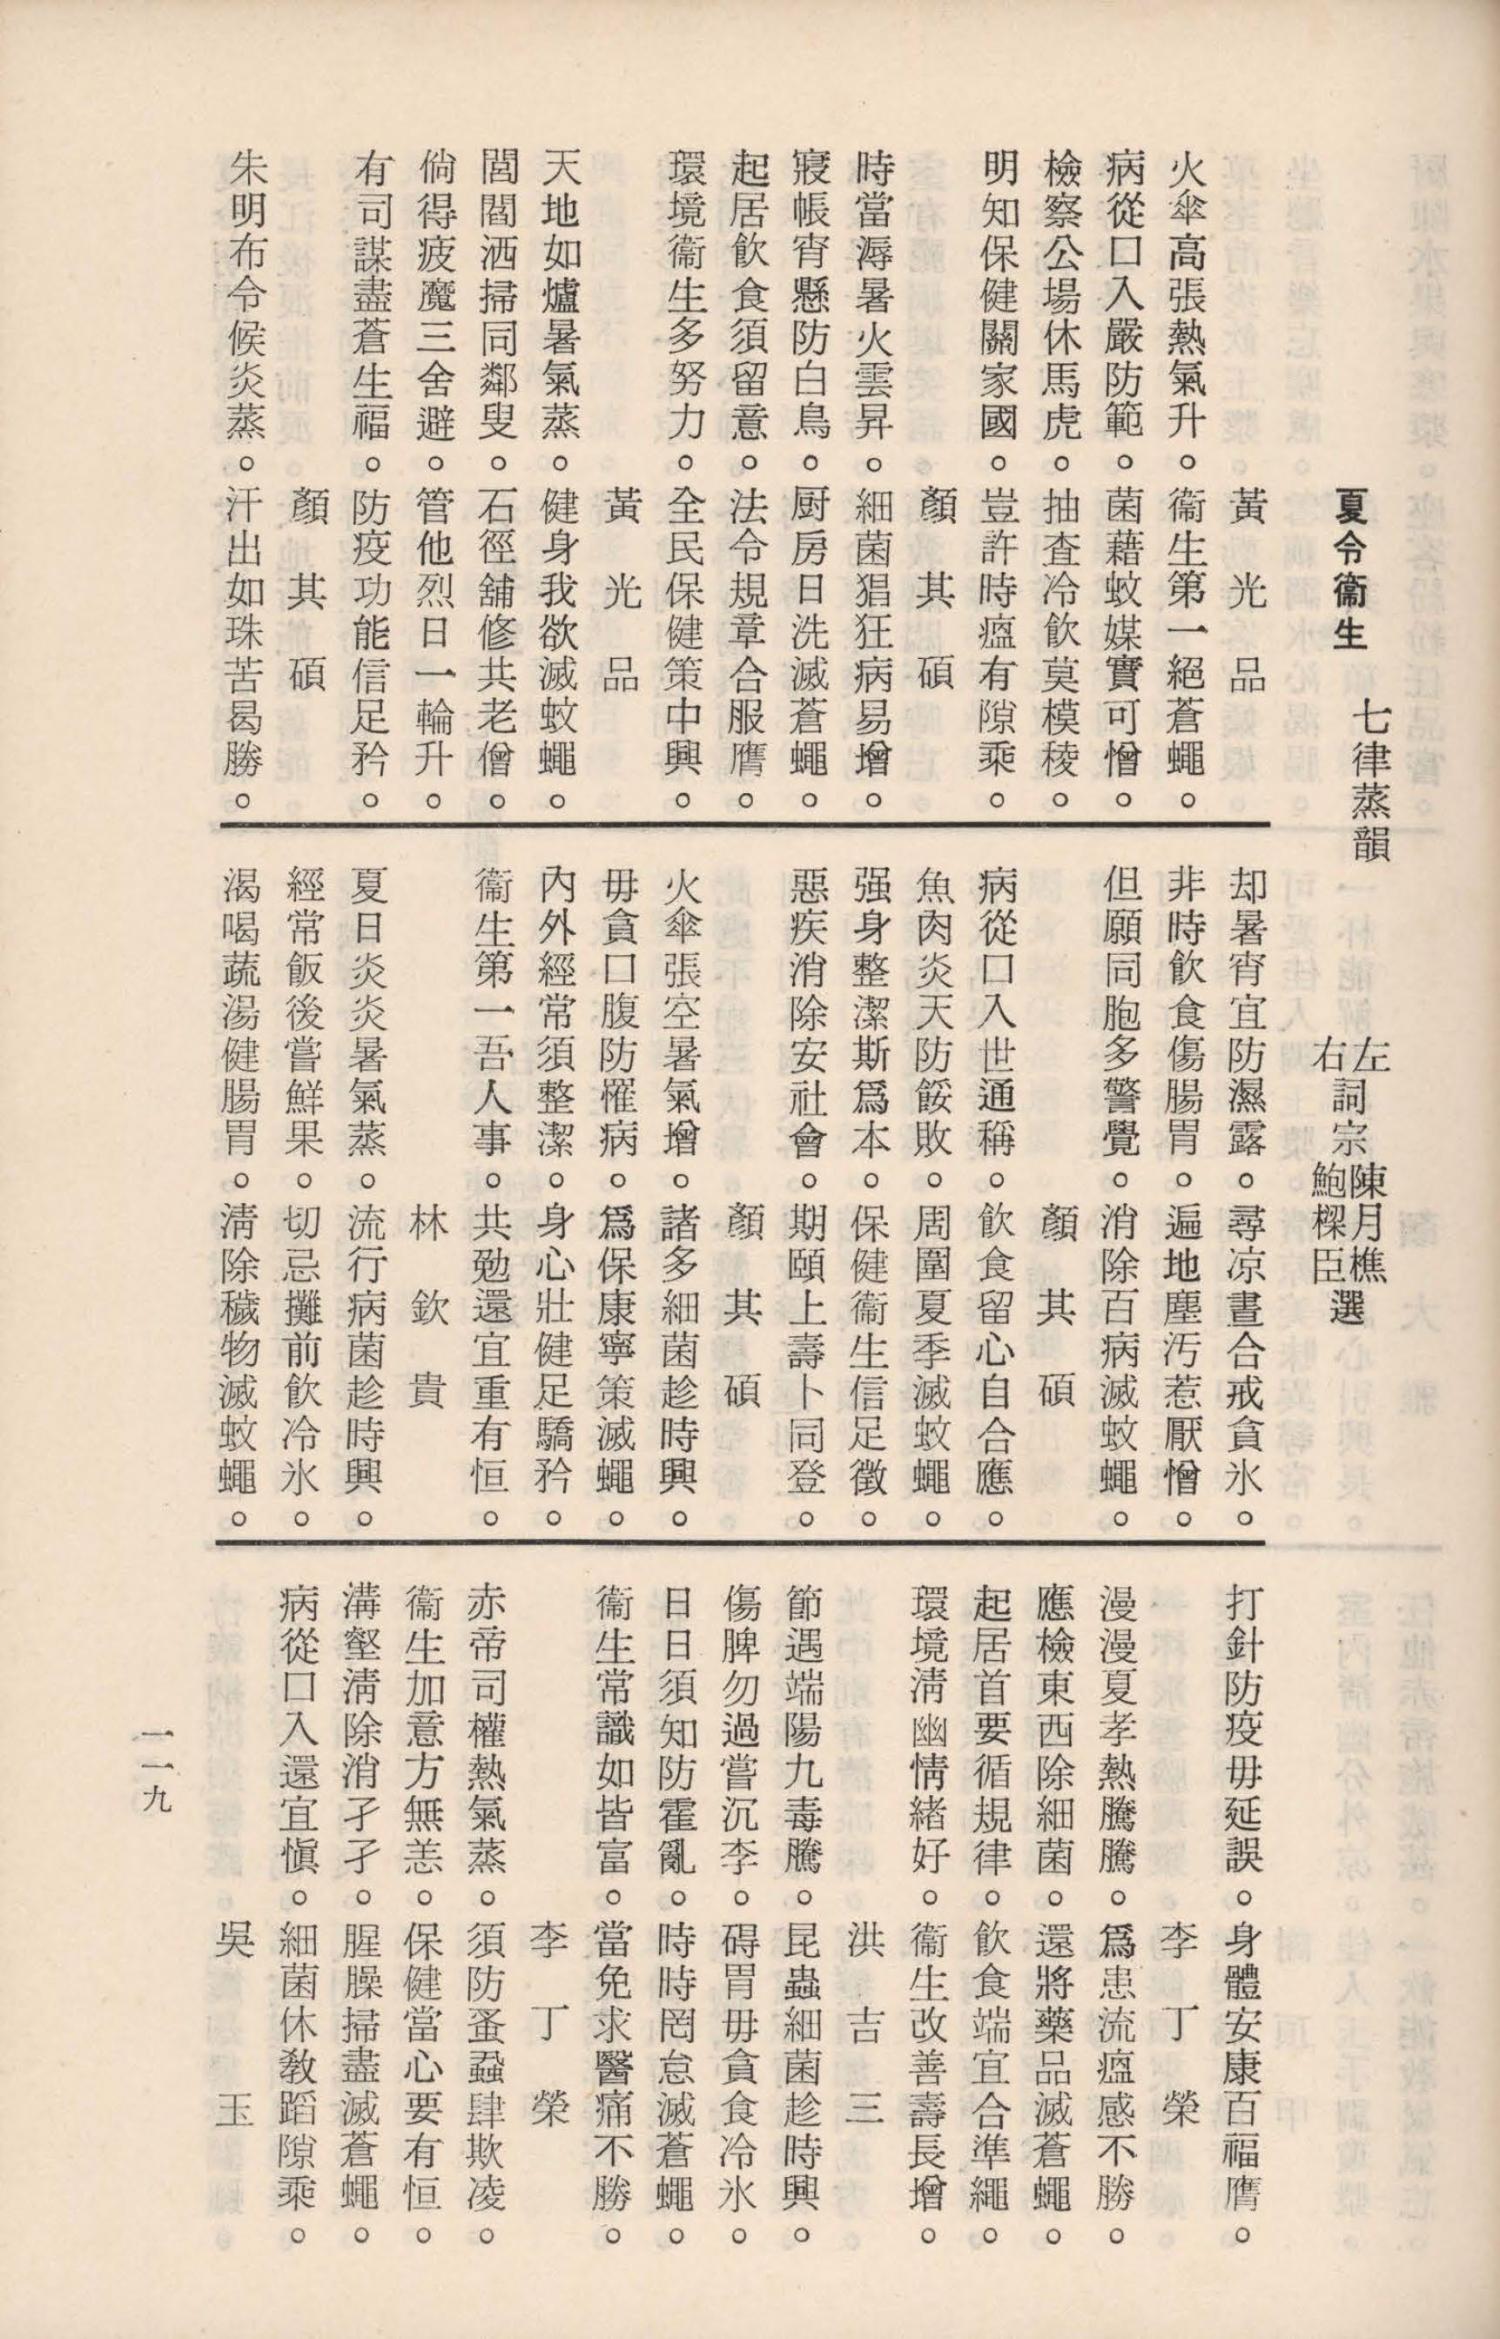 夏令衞生　七律蒸韻　左詞宗陳月樵　右詞宗鮑樑臣選
黃光品
火傘高張熱氣升。衞生第一絕蒼蠅。
病從口入嚴防範。菌藉蚊媒實可憎。
檢察公場休馬虎。抽查冷飲莫模稜。
明知保健關家國。豈許時瘟有隙乘。
顏其碩
時當溽暑火雲昇。細菌猖狂病易增。
寢帳宵懸防白鳥。厨房日洗滅蒼蠅。
起居飲食須留意。法令規章合服膺。
環境衞生多努力。全民保健策中興。
黃光品
天地如爐暑氣蒸。健身我欲滅蚊蠅。
閭閻洒掃同鄰叟。石徑舖修共老僧。
倘得疲魔三舍避。管他烈日一輪升。
有司謀盡蒼生福。防疫功能信足矜。
顏其碩
朱明布令候炎蒸。汗出如珠苦曷勝。
却暑宵宜防濕露。尋凉晝合戒貪氷。
非時飲食傷腸胃。遍地塵汚惹厭憎。
但願同胞多警覺。消除百病滅蚊蠅。
顏其碩
病從口入世通稱。飲食留心自合應。
魚肉炎天防餒敗。周圍夏季滅蚊蠅。
强身整潔斯爲本。保健衞生信足徵。
惡疾消除安社會。期頤上壽卜同登。
顏其碩
火傘張空暑氣增。諸多細菌趁時興。
毋貪口腹防罹病。爲保康寧策滅蠅。
內外經常須整潔。身心壯健足驕矜。
衞生第一吾人事。共勉還宜重有恒。
林欽貴
夏日炎炎暑氣蒸。流行病菌趁時興。
經常飯後嘗鮮果。切忌攤前飲冷氷。
渴喝蔬湯健腸胃。淸除穢物滅蚊蠅。
打針防疫毋延誤。身體安康百福膺。
李丁榮
漫漫夏孝熱騰騰。爲患流瘟感不勝。
應檢東西除細菌。還將藥品滅蒼蠅。
起居首要循規律。飲食端宜合準繩。
環境淸幽情緒好。衞生改善壽長增。
洪吉三
節遇端陽九毒騰。昆蟲細菌趁時興。
傷脾勿過嘗沉李。碍胃毋貪食冷氷。
日日須知防霍亂。時時罔怠滅蒼蠅。
衞生常識如皆富。當免求醫痛不勝。
李丁榮
赤帝司權熱氣蒸。須防蚤蝨肆欺凌。
衞生加意方無恙。保健當心要有恒。
溝壑淸除消孑孓。腥臊掃盡滅蒼蠅。
病從口入還宜愼。細菌休教蹈隙乘。
吳玉
一一九